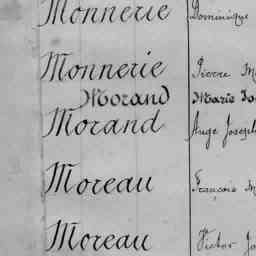 Monnerie Dominique
Monnerie Pierre M
Morand Marie Jo
Morand Ange Joseph
Moreau François M
Moreau Victor Jo